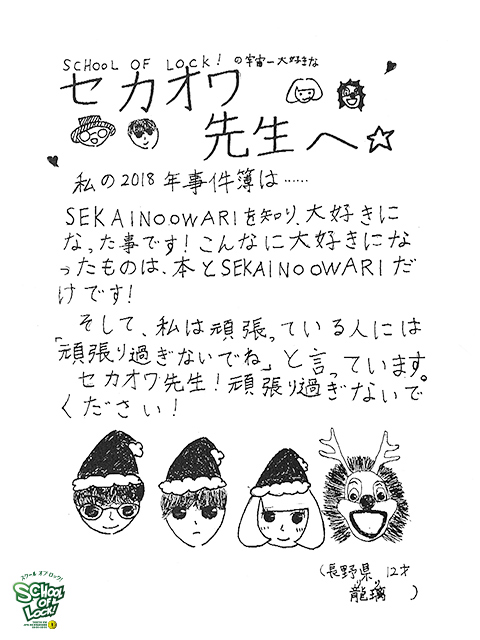 SCHOOL OF LOCK! の宇宙一大好きな
セカオワ
先生へ☆
私の2018年事件簿は……
SEKAINOOWARIを知り、大好きに
なった事です！こんなに大好きにな
ったものは、本とSEKAINOOWARIだ
けです！
そして、私は頑張っている人には
「頑張り過ぎないでね」と言っています。
セカオワ先生！頑張り過ぎないで
ください！
(長野県 12才
龍璃 )
スクール オブ ロック！
SCHOOL
OF
LOCK!